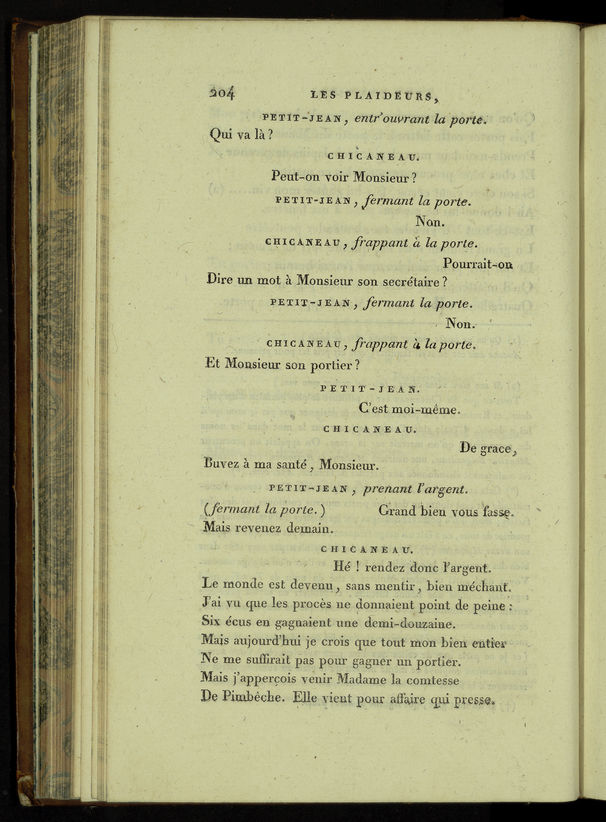 204 LES PLAIDEURS,
PETIT-JEAN, entr'ouvrant la porte.
Qui va là?
CHICANEAU.
Peut-on voir Monsieur?
PETIT-JEAN, fermant la porte.
Non.
CHICANEAU, frappant à la porte.
Pourrait-on
Dire un mot à Monsieur son secrétaire?
PETIT-JEAN, fermant la porte.
Non.
CHICANEAU, frappant à la porte.
Et Monsieur son portier?
PETIT-JEAN.
C'est moi-même.
CHICANEAU.
De grace,
Buvez à ma santé, Monsieur.
PETIT-JEAN, prenant l'argent.
(fermant la porte.) Grand bien vous fasse.
Mais revenez demain.
CHICANEAU.
Hé! rendez donc l'argent.
Le monde est devenu, sans mentir, bien méchant.
J'ai vu que les procès ne donnaient point de peine:
Six écus en gagnaient une demi-douzaine.
Mais aujourd'hui je crois que tout mon bien entier
Ne me suffirait pas pour gagner un portier.
Mais j'apperçois venir Madame la comtesse
De Pimbêche. Elle vient pour affaire qui presse.